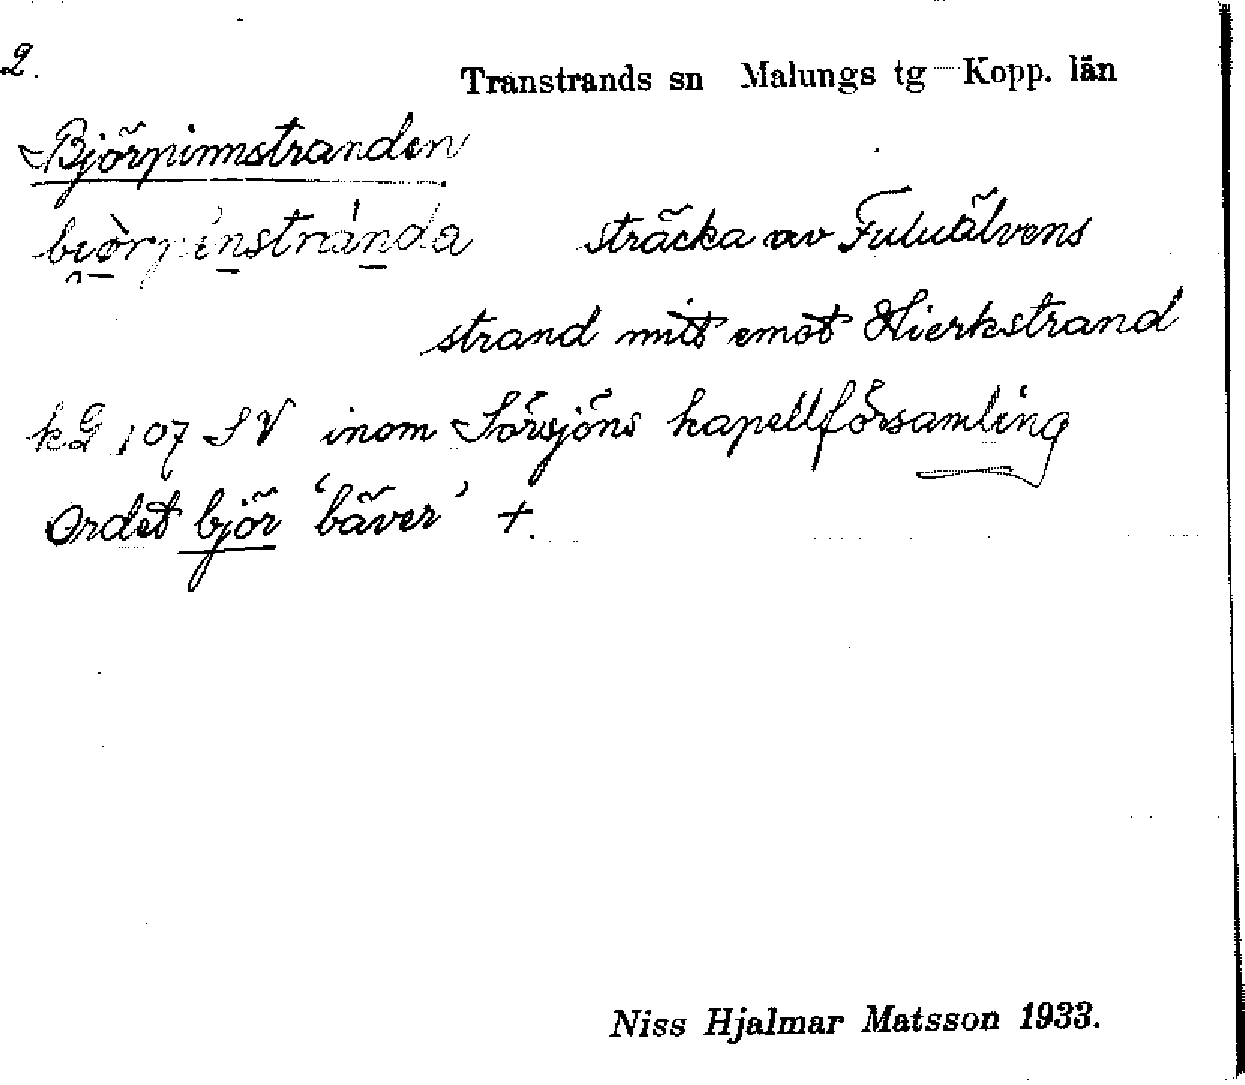 2.
Transtrands sn Malungs tg Kopp. län
Björpinnstranden
sträcka av Fuluälvens
strand mitt emot Hierkstrand
kG 107 SV inom Sörsjöns kapellförsamling
Ordet björ 'bäver' +.
Niss Hjalmar Matsson 1933.